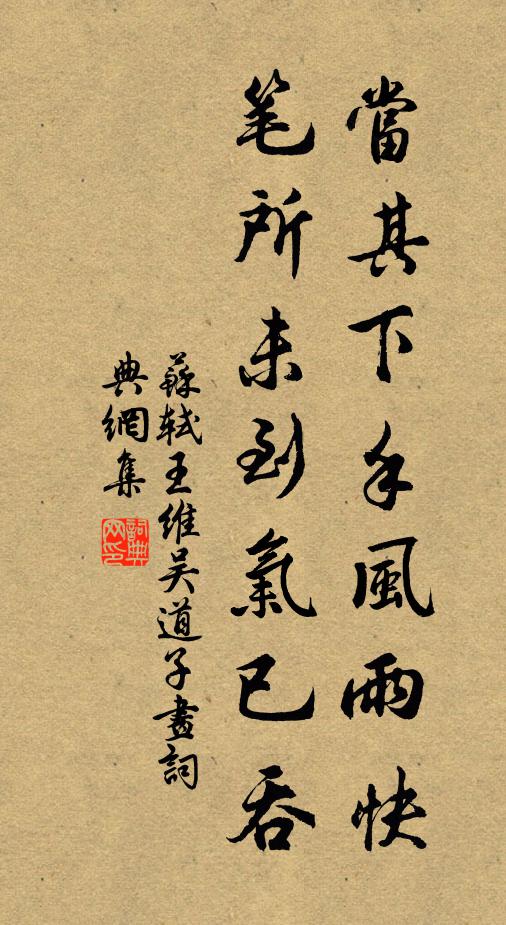 當其下手風雨快
笔所未到氣已吞
蘇軾王維吴道子畫詞
典網集
詞典
网印